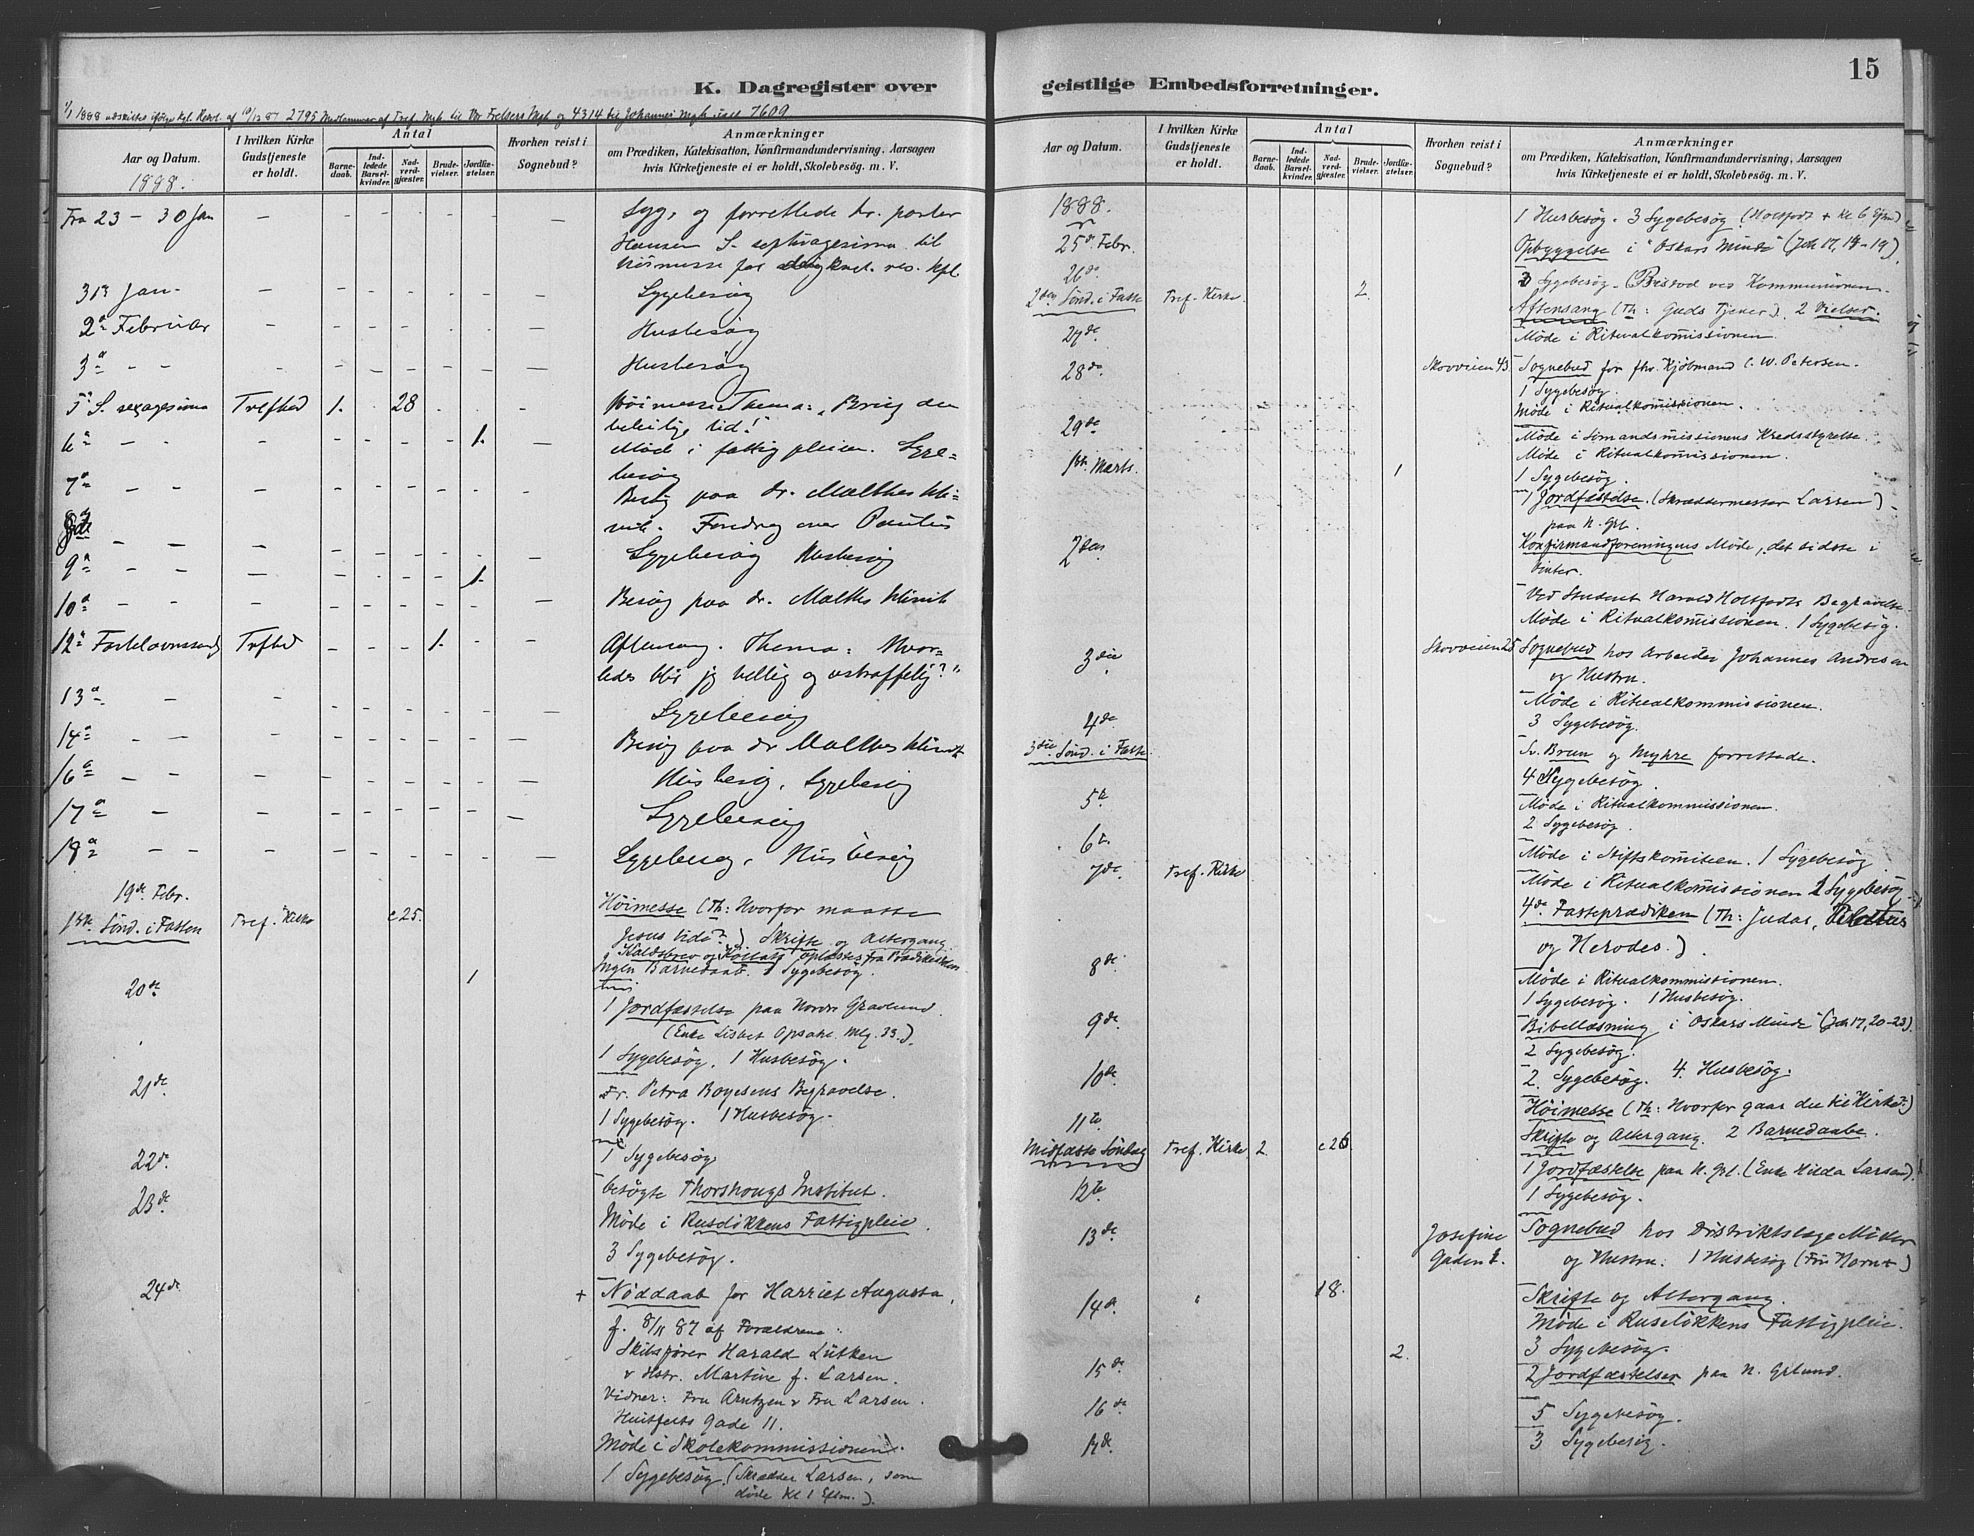 K. Dagregister over
1/1 1888 udskiltes ifølge kgl. Resol. af 10/12 87 2795 Medlemmer af Tref. Mgh. til Vor Frelsers Mgh. og 4314 til Johannes Mgh. 7609
Aar og Datum.
I hvilken Kirke Gudstjeneste er holdt.
Antal
Barnedaab.
Indledede Barselkvinder.
Nadverdgjæster.
Brudevielser.
Jordfæstelser.
Hvorhen reist i Sognebud?
Anmærkninger
om Prædiken, Katekisation, Konfirmandundervisning, Aarsagen
hvis Kirketjeneste ei er holdt, Skolebesøg. m. V.
1888.
Fra 23 – 30 Jan – – – – – – – Syg, og forrettede hr. pastor
Hansen S. septuagesima til
høimesse for res. kpl.
31te Jan. – – – – – – – Sygebesøg
2den Februar – – – – – – – Husbesøg
3de – – – – – – – Husbesøg
5te S. sexagesima Trefhed 1. 28 Høimesse Thema: „Brug den
beleilige tid!
6te – – – 1. – Møde i fattigpleien. Syge-
besøg
7de – – – Besøg paa dr. Malthes kli-
nik. Foredrag over Paulus
8de – – – Sygebesøg Husbesøg
9de – – – 1.
10de – – – Besøg paa dr. Malthes klinik
12te Fastelavnssønd. Trefhed – – – 1. – – Aftensang. Thema: Hvor-
ledes blir jeg hellig og ustraffelig?"
13de – – Sygebesøg
14de – – – Besøg paa dr Malthes klinik
16de – – – Husbesøg, Sygebesøg
17de – – – Sygebesøg
18de – – – Sygebesøg, Husbesøg
19de Febr.
1ste Sønd. i Fasten Tref. Kirke c 25. Høimesse (Th: Hvorfor maatte
Jesus lide?) Skrifte og Altergang.
Kaldsbrev og Kollats oplæstes fra Prædikestolen
Ingen Barnedaab. 1 Sygebesøg.
20de 1 1 Jordfæstelse paa Nordre Gravlund.
(Enke Lisbet Opsahl Mlg. 33.)
1 Sygebesøg. 1 Husbesøg.
21de Fr. Petra Boyesens Begravelse.
1 Sygebesøg. 1 Husbesøg.
22de 1 Sygebesøg
23de besøgte Thorshougs Institut.
Møde i Ruseløkkens Fattigpleie.
3 Sygebesøg.
24de + Nøddaab for Harriet Augusta,
f. 8/11 87 af Forældrene:
Skibsfører Harald Lütken
& Hstr. Martine f. Larsen.
Vidner: Fru Arntzen & Fru Larsen.
Huitfelts Gade 11.
Møde i Skolekommissionen.
1 Sygebesøg (Skrædder Larsen, som
døde Kl 1 Eftm.)
geistlige Embedsforretninger.
15
Aar og Datum.
I hvilken Kirke Gudstjeneste er holdt.
Antal
Barnedaab.
Indledede Barselkvinder.
Nadverdgjæster.
Brudevielser.
Jordfæstelser.
Hvorhen reist i Sognebud?
Anmærkninger
om Prædiken, Katekisation, Konfirmandundervisning, Aarsagen
hvis Kirketjeneste ei er holdt, Skolebesøg. m. V.
1888.
1 Husbesøg. 3 Sygebesøg (Holtfodt + kl 6 Eftm)
25de Febr. Opbyggelse i "Oskars Minde" (Joh 17, 14-19).
26de 3 Sygebesøg. (Bistod ved Kommunionen.
2den Sønd. i Faste Tref. Kirke. 2. Aftensang (Th: Guds Tjener). 2 Vielser.
27de Møde i Ritualkommissionen.
28de Skovveien 43. Sognebud for fhv. Kjøbmand C. W. Petersen.
1 Sygebesøg
Møde i Ritualkommissionen.
29de Møde i Sømandsmissionens Kredsstyrelse.
Møde i Ritualkommissionen.
1ste Marts. 1 1 Sygebesøg.
1 Jordfæstelse (Skræddermester Larsen)
paa N. Grl.
2den Konfirmandforeningens Møde, det sidste i
Vinter.
Ved Student Harald Holtfodts Begravelse.
Møde i Ritualkommissionen. 1 Sygebesøg.
3die Skovveien 25 Sognebud hos Arbeider Johannes Andresen
og Hustru.
Møde i Ritualkommissionen.
3 Sygebesøg.
4de
3die Sønd. i Faste. Hr. Brun og Myhre forrettede.
4 Sygebesøg.
5te Møde i Ritualkommissionen.
2 Sygebesøg.
6te Møde i Stiftskomiteen. 1 Sygebesøg
7de Tref. Kirke Møde i Ritualkommissionen 2 Sygebesøg
4de Fasteprædiken (Th: Judas, Pilatus
og Herodes.)
8de Møde i Ritualkommissionen.
1 Sygebesøg. 1 Husbesøg.
9de Bibellæsning i "Oskars Minde" (Joh 17, 20-23).
2 Sygebesøg.
10de 2. Sygebesøg. 4. Husbesøg.
11te Høimesse (Th: Hvorfor gaar du til Kirke?)
Midfaste Søndag Tref. Kirke 2. c 26 Skrifte og Altergang. 2 Barnedaabe.
12te 1 Jordfæstelse paa N. Grl. (Enke Hilda Larsen).
1 Sygebesøg.
13de Josefine Gaden Sognebud hos Distriktslæge Møller
og Hustru. 1 Husbesøg (Fru Horn+)
14de " 18. Skrifte og Altergang.
Møde i Ruseløkkens Fattigpleie.
3 Sygebesøg.
15de 2. 2 Jordfæstelser paa N. Grlund.
16de 5 Sygebesøg.
17de 3 Sygebesøg.